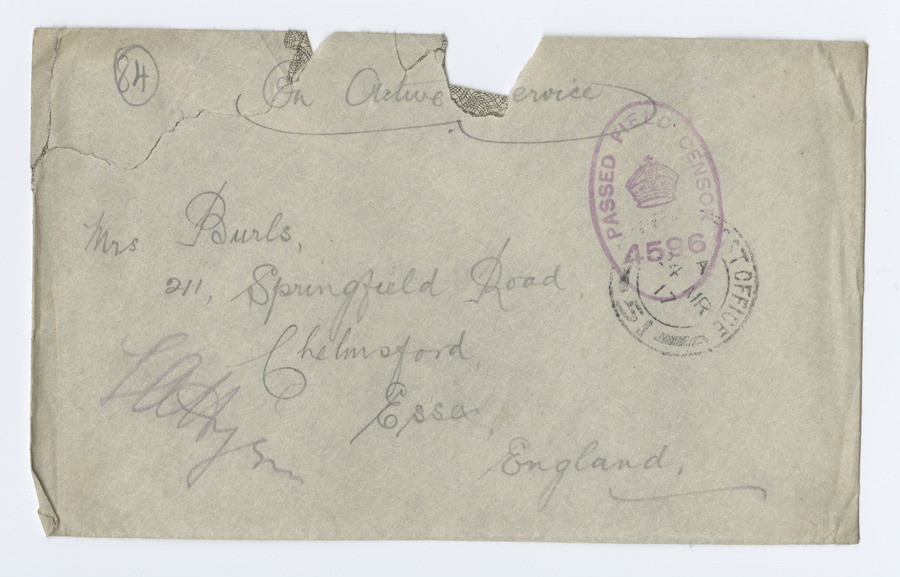 84
On Active ervice
PASSED FIELD CENSOR
4596
ST OFFICE
A
24
17
Mrs Burls,
211, Springfield Road,
Chelmsford,
Essex,
England,